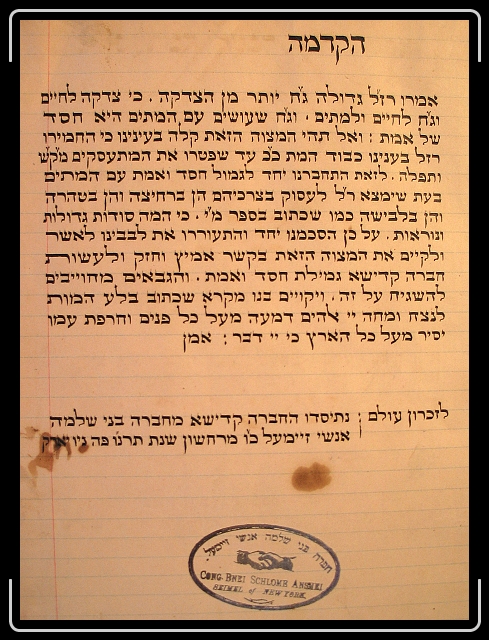 הקדמה
אמרו רז״ל גדולה ג״ח יותר מן הצדקה . כי צדקה לחיים
וג״ח לחיים ולמתים . וג״ח שעושים עם המתים היא חסד
של אמת : ואל תהי המצוה הזאת קלה בעינינו כי החמירו
רז״ל בענינו כבוד המת כ״כ עד שפטרו את המתעסקים מק״ש
ותפלה . לזאת התחברנו יחד לגמול חסד ואמת עם המתים
בעת שימצא ר״ל לעסוק בצרכיהם הן ברחיצה והן בטהרה
והן בלבישה כמו שכתוב בספר מ״י . כי המה סודות גדולות
ונוראות . על כן הסכמנו יחד והתעוררו את לבבינו לאשר
ולקיים את המצוה הזאת בקשר אמיץ וחזק ולעשות
חברה קדישא גמילת חסד ואמת . והגבאים מחוייבים
להשגיח על זה . ויקויים בנו מקרא שכתוב בלע המות
לנצח ומחה יי אלהים דמעה מעל כל פנים וחרפת עמו
יסיר מעל כל הארץ כי יי דבר : אמן
לזכרון עולם : נתיסדו החברה קדישא מחברה בני שלמה
אנשי זיימעל כ״ו מרחשון שנת תרנ״ו פה ניו יארק
חברה בני שלמה אנשי זיימעל
CONG. BNEI SCHLOME ANSHEI
SEIMEL of NEW YORK.